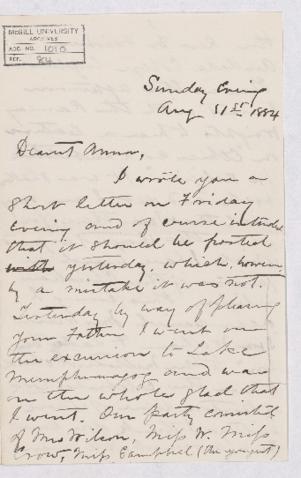 McGILL UNIVERSITY
ARCHIVES
ACC. NO. 1010
REF. 84
Sunday Evening
Aug 31st 1884
Dearest Anna,
I wrote you a
short letter on Friday
Evening and of course intended
that it should be posted
yesterday, which, however,
by a mistake it was not.
Yesterday by way of pleasing
your Father I went on
the excursion to Lake
Memphremagog and was
on the whole glad that
I went. Our party consisted
of Mrs Wilson, Miss W. Miss
Crow, Miss Campbell (the youngest)